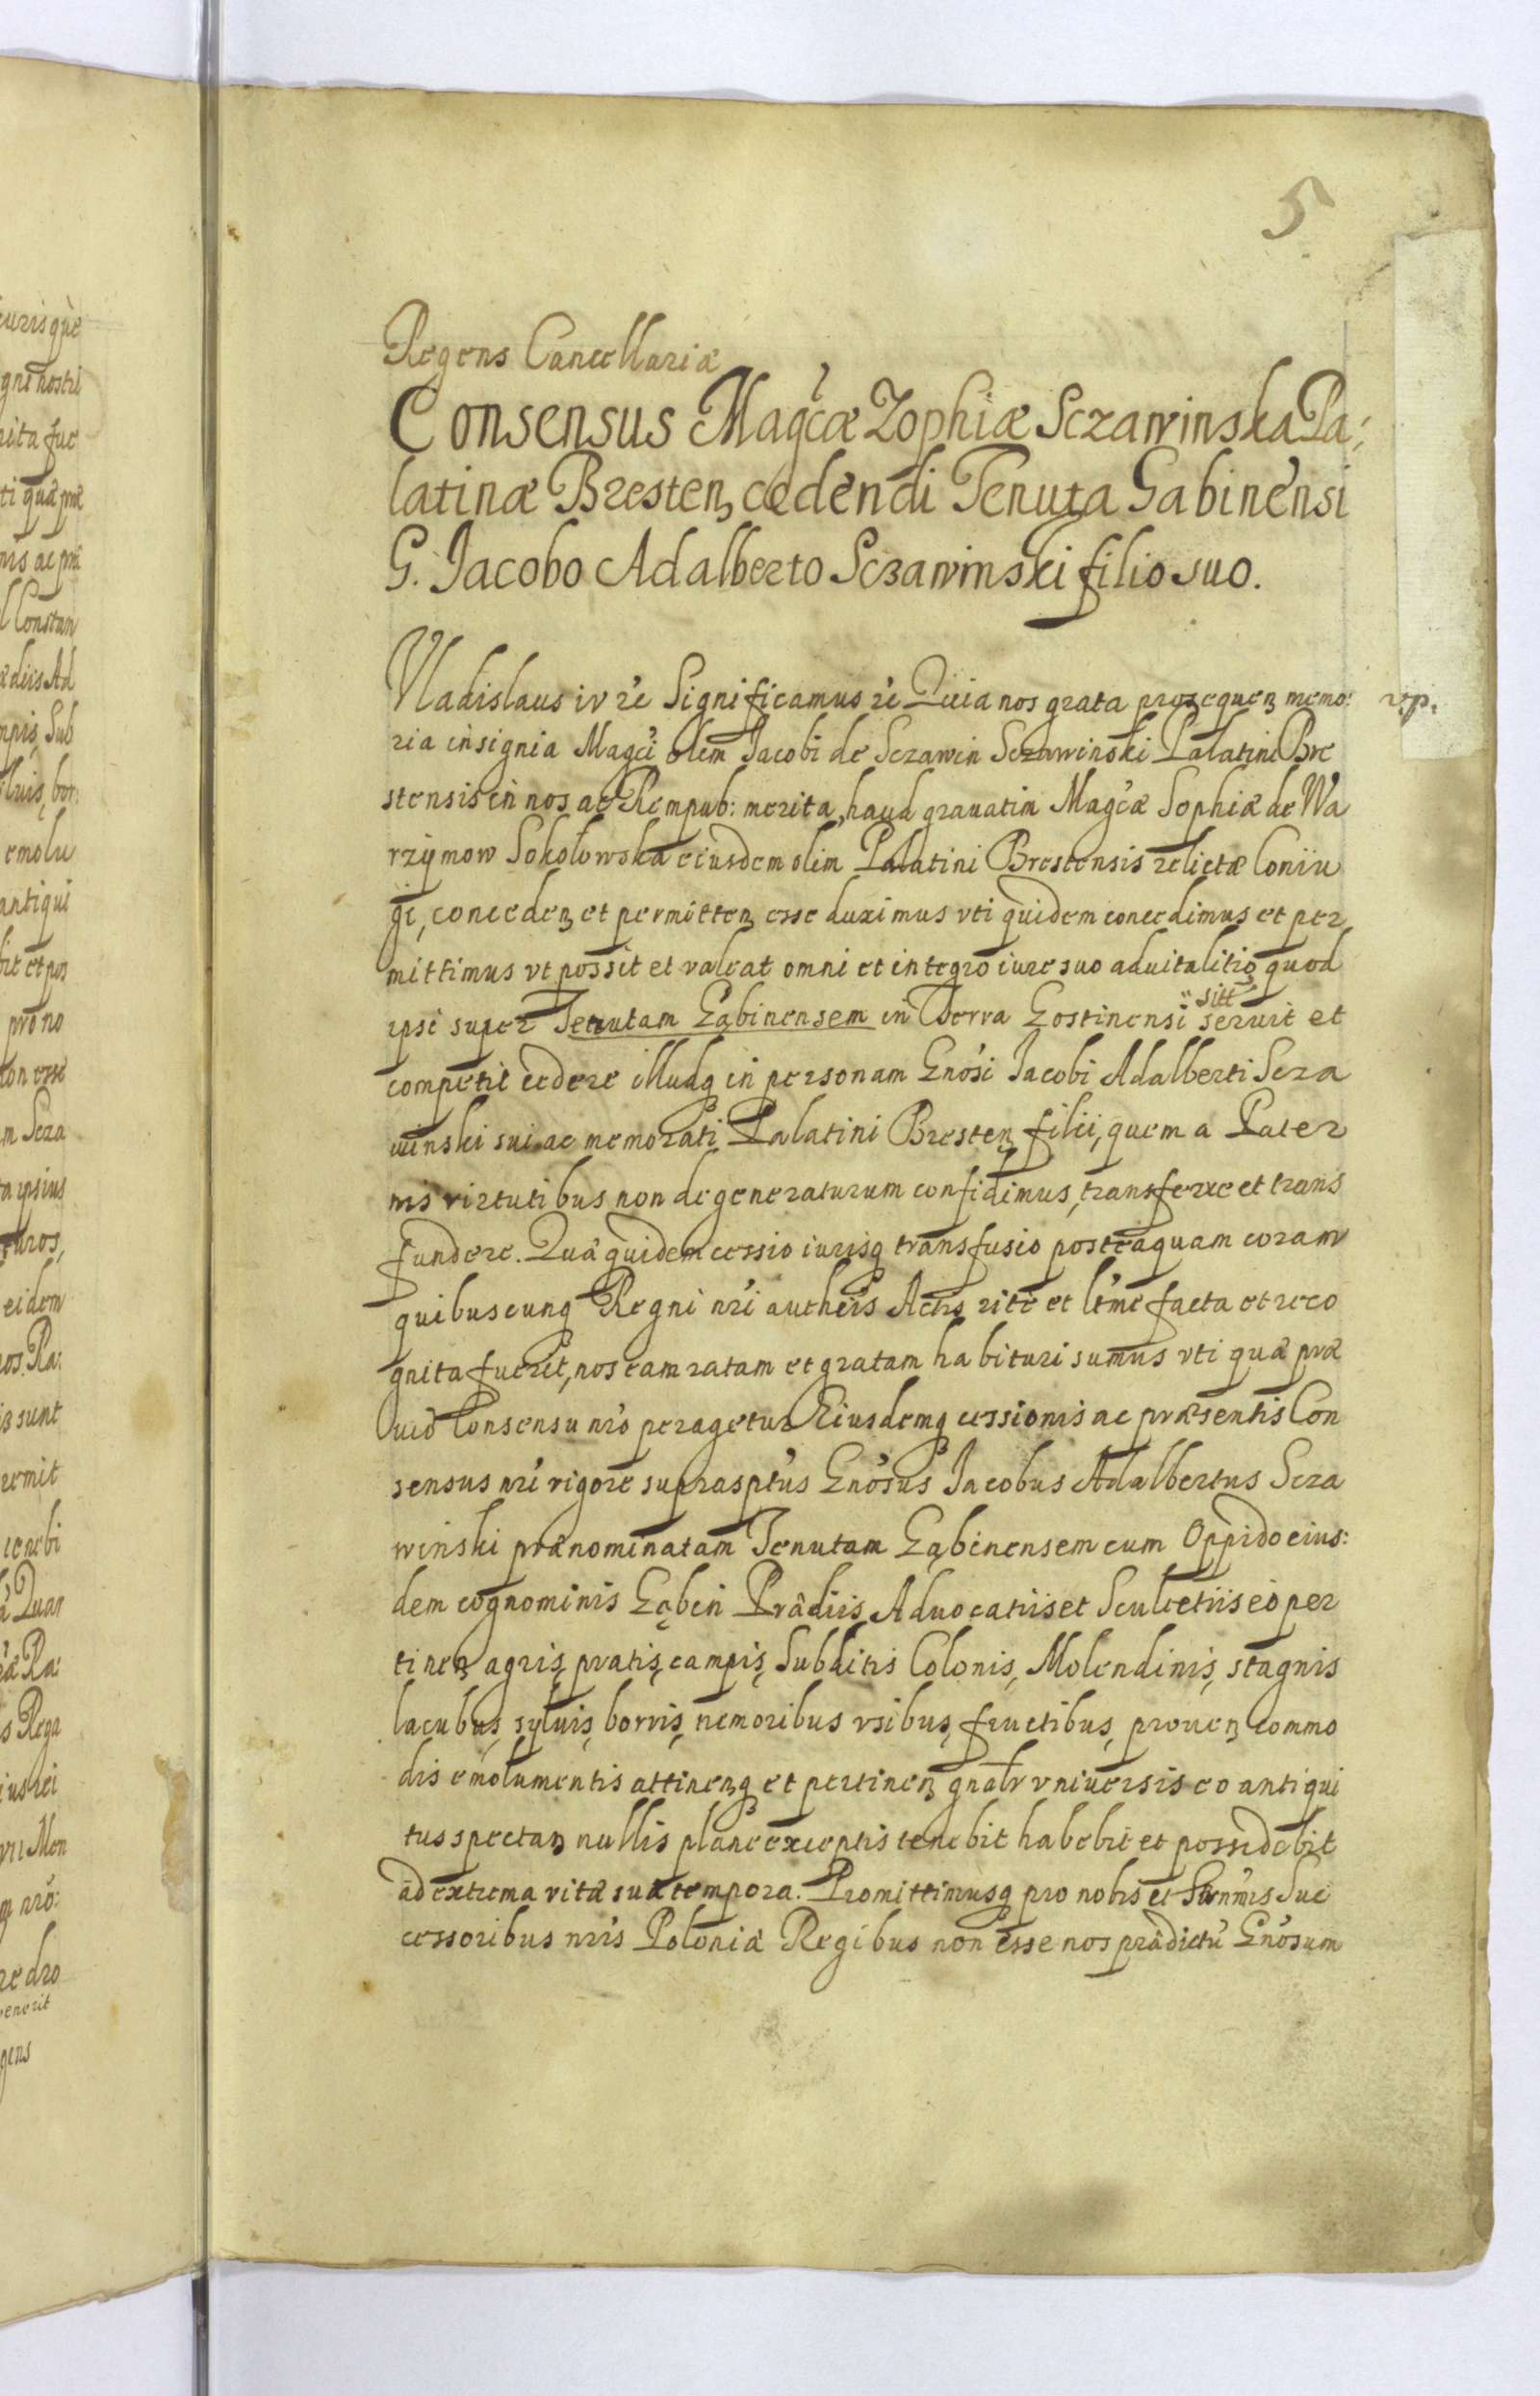 5
Regens Cancellariæ
Consensus Magcæ Zophiæ Sczawinska Pa:
latinæ Bresten, cedendi Tenuta Gabinensi
G. Jacobo Adalberto Sczawinski filio suo.
Vladislaus iv rẽ Significamus rẽ Quia nos grata prosequen memo: rp.
ria insignia Magci olim Jacobi de Sczawin Sczawinski Palatini Bre
stensis in nos ac Rempub: merita, haud grauatim Magcæ Sophiæ de Wa
rzymow Sokołowska eiusdem olim Palatini Brestensis relictæ Coniu
gi, conceden et permitten esse duximus vti quidem concedimus et per
mittimus vt possit et valeat omni et integro iure suo aduitalitio quod
sitt
ipsi super Tenutam Gąbinensem in Terra Gostinensi seruit et
competit cedere illudq in personam Gnosi Jacobi Adalberti Scza
winski sui ac memorati Palatini Bresten filii, quem a Pater
nis virtutibus non degeneraturum confidimus, transferre et trans
fundere. Quæ quidem cessio iurisq transfusio posteaquam coram
quibuscunq Regni nri autheis Actis rite et ltme facta et reco
gnita fuerit, nos eam ratam et gratam habituri sumus vti quæ præ
uio Consensu nro peragetur Eiusdemq cessionis ac præsentis Con
sensus nri vigore suprasptus Gnosus Jacobus Adalbertus Scza
winski prænominatam Tenutam Gąbinensem cum Oppido eius:
dem cognominis Gąbin Prædiis Aduocatiis et Scultetiis eo per
tinen agris, pratis, campis, Subditis Colonis, Molendinis, stagnis
lacubus, syluis, borris, nemoribus vsibus, fructibus, prouen commo
dis emolumentis attinenq et pertinen gnalr vniuersis eo antiqui
tus spectan nullis plane exceptis tenebit habebit et possidebit
ad extrema vitæ suæ tempora. Promittimusq pro nobis et Srnmis Suc
cessoribus nris Poloniæ Regibus non esse nos prædictu Gnosum